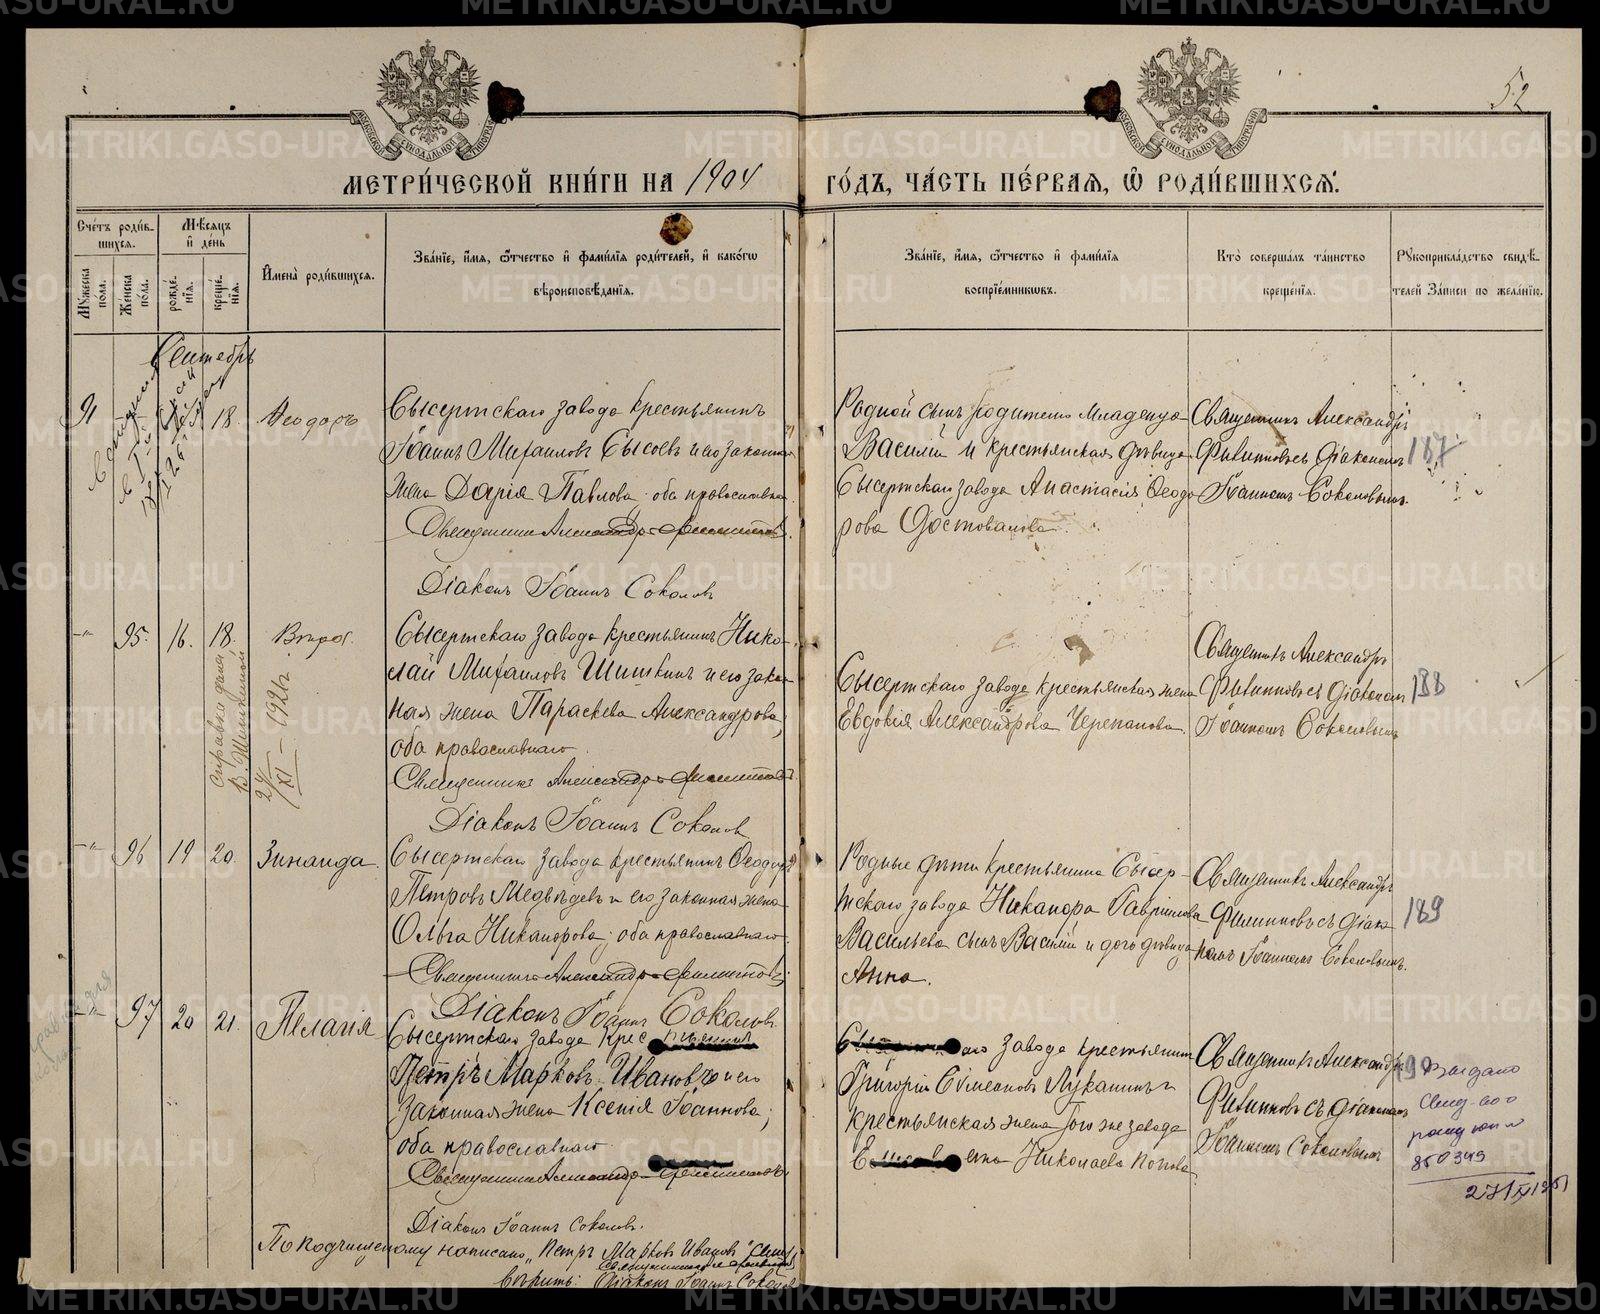 52
МЕТРИ́ЧЕСКОЙ КНИ́ГИ НА 1904
ГО́ДЪ, ЧА́СТЬ ПЕ́РВАЯ, Ѡ РОДИ́ВШИХСЯ.
Сче́тъ роди́в-
шихся.
Мѣ́сяцъ
и де́нь
Му́жеска
по́ла.
Же́нска
по́ла.
рожде́-
нія.
креще́-
нія.
Имена̀ роди́вшихся.
Зва́ніе, и́мя, ѻ́тчество и фами́лія роди́телей, и како́гѡ
вѣроисповѣ́данія.
Зва́ніе, и́мя, ѻ́тчество и фами́лія
воспріе́мниковъ.
Кто̀ соверша́лъ та́инство
креще́нія.
Рукоприкла́дство свидѣ́-
телей за́писи по жела́нію.
Сентябрь
91
18.
Ѳеодоръ
Сысертскаго завода крестьянинъ
Іоаннъ Михаиловъ Сысоевъ и его законная
жена Дарія Павлова оба православнаго
Священникъ Александръ Филипповъ
Діаконъ Іоаннъ Соколовъ
Родной сынъ родителей младенца
Василій и крестьянская дѣвица
Сысертскаго завода Анастасія Ѳеодо
рова
Священникъ Александръ
Филипповъ съ діакономъ
Іоанномъ Соколовымъ.
187
95. 16. 18.
Вѣра.
Справка дана
В. Шишкиной
24/XI - 1926 г.
Сысертскаго завода крестьянинъ Нико-
лай Михаиловъ Шишкинъ и его закон
ная жена Параскева Александрова,
оба православнаго
Священникъ Александръ Филипповъ
Діаконъ Іоаннъ Соколовъ
Сысертскаго завода крестьянская жена
Евдокія Александрова Черепанова.
Священникъ Александръ
Филипповъ съ діакономъ
Іоанномъ Соколовымъ
188
96 19 20.
Зинаида.
Сысертскаго завода крестьянинъ Ѳеодоръ
Петровъ Медвѣдевъ и его законная жена
Ольга Никанорова, оба православнаго
Священникъ Александръ Филипповъ
Діаконъ Іоаннъ Соколовъ
Родные дѣти крестьянина Сысер-
тскаго завода Никанора Гавриилова
Васильева сынъ Василій и дочь дѣвица
Анна.
Священникъ Александръ
Филипповъ съ діако
номъ Іоанномъ Соколовымъ.
189
97 20 21.
Пелагія
Сысертскаго завода крестьянинъ
Петръ Марковъ Ивановъ и его
законная жена Ксенія Іоаннова,
оба православнаго
Священникъ Александръ Филипповъ
Діаконъ Іоаннъ Соколовъ.
завода крестьянинъ
Григорій Симеоновъ Луканинъ и
крестьянская жена того же завода
Николаева Попова
Священникъ Александръ
Филипповъ съ діакономъ
Іоанномъ Соколовымъ
190
Выдано
свид-во о
рождении
850349
По подчищеному написано „Петръ Марковъ Ивановъ“
вѣрить: Діаконъ Іоаннъ Соколовъ
METRIKI.GASO-URAL.RU